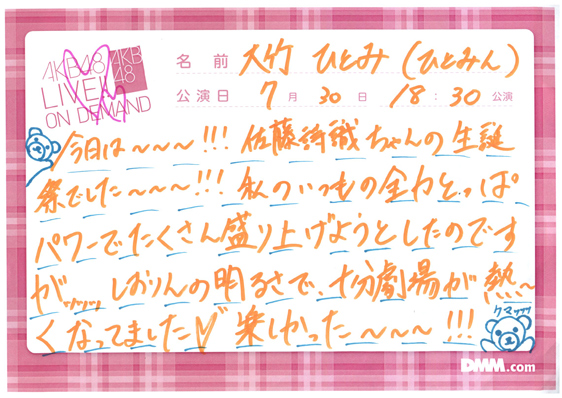 AKB48
LIVE!!
ON DEMAND
AKB
48
名前 大竹 ひとみ (ひとみん)
公演日 7月 30日 18:30 公演
今日は〜〜〜!!! 佐藤綺識ちゃんの生誕
祭でした〜〜〜!!! 私のいつもの全力とっぱ
パワーでたくさん盛り上げようとしたのです
が、、、、しおりんの明るさで、十分劇場が熱〜
くなってました♡ 楽しかった〜〜〜!!!
クマッ
DMM.com